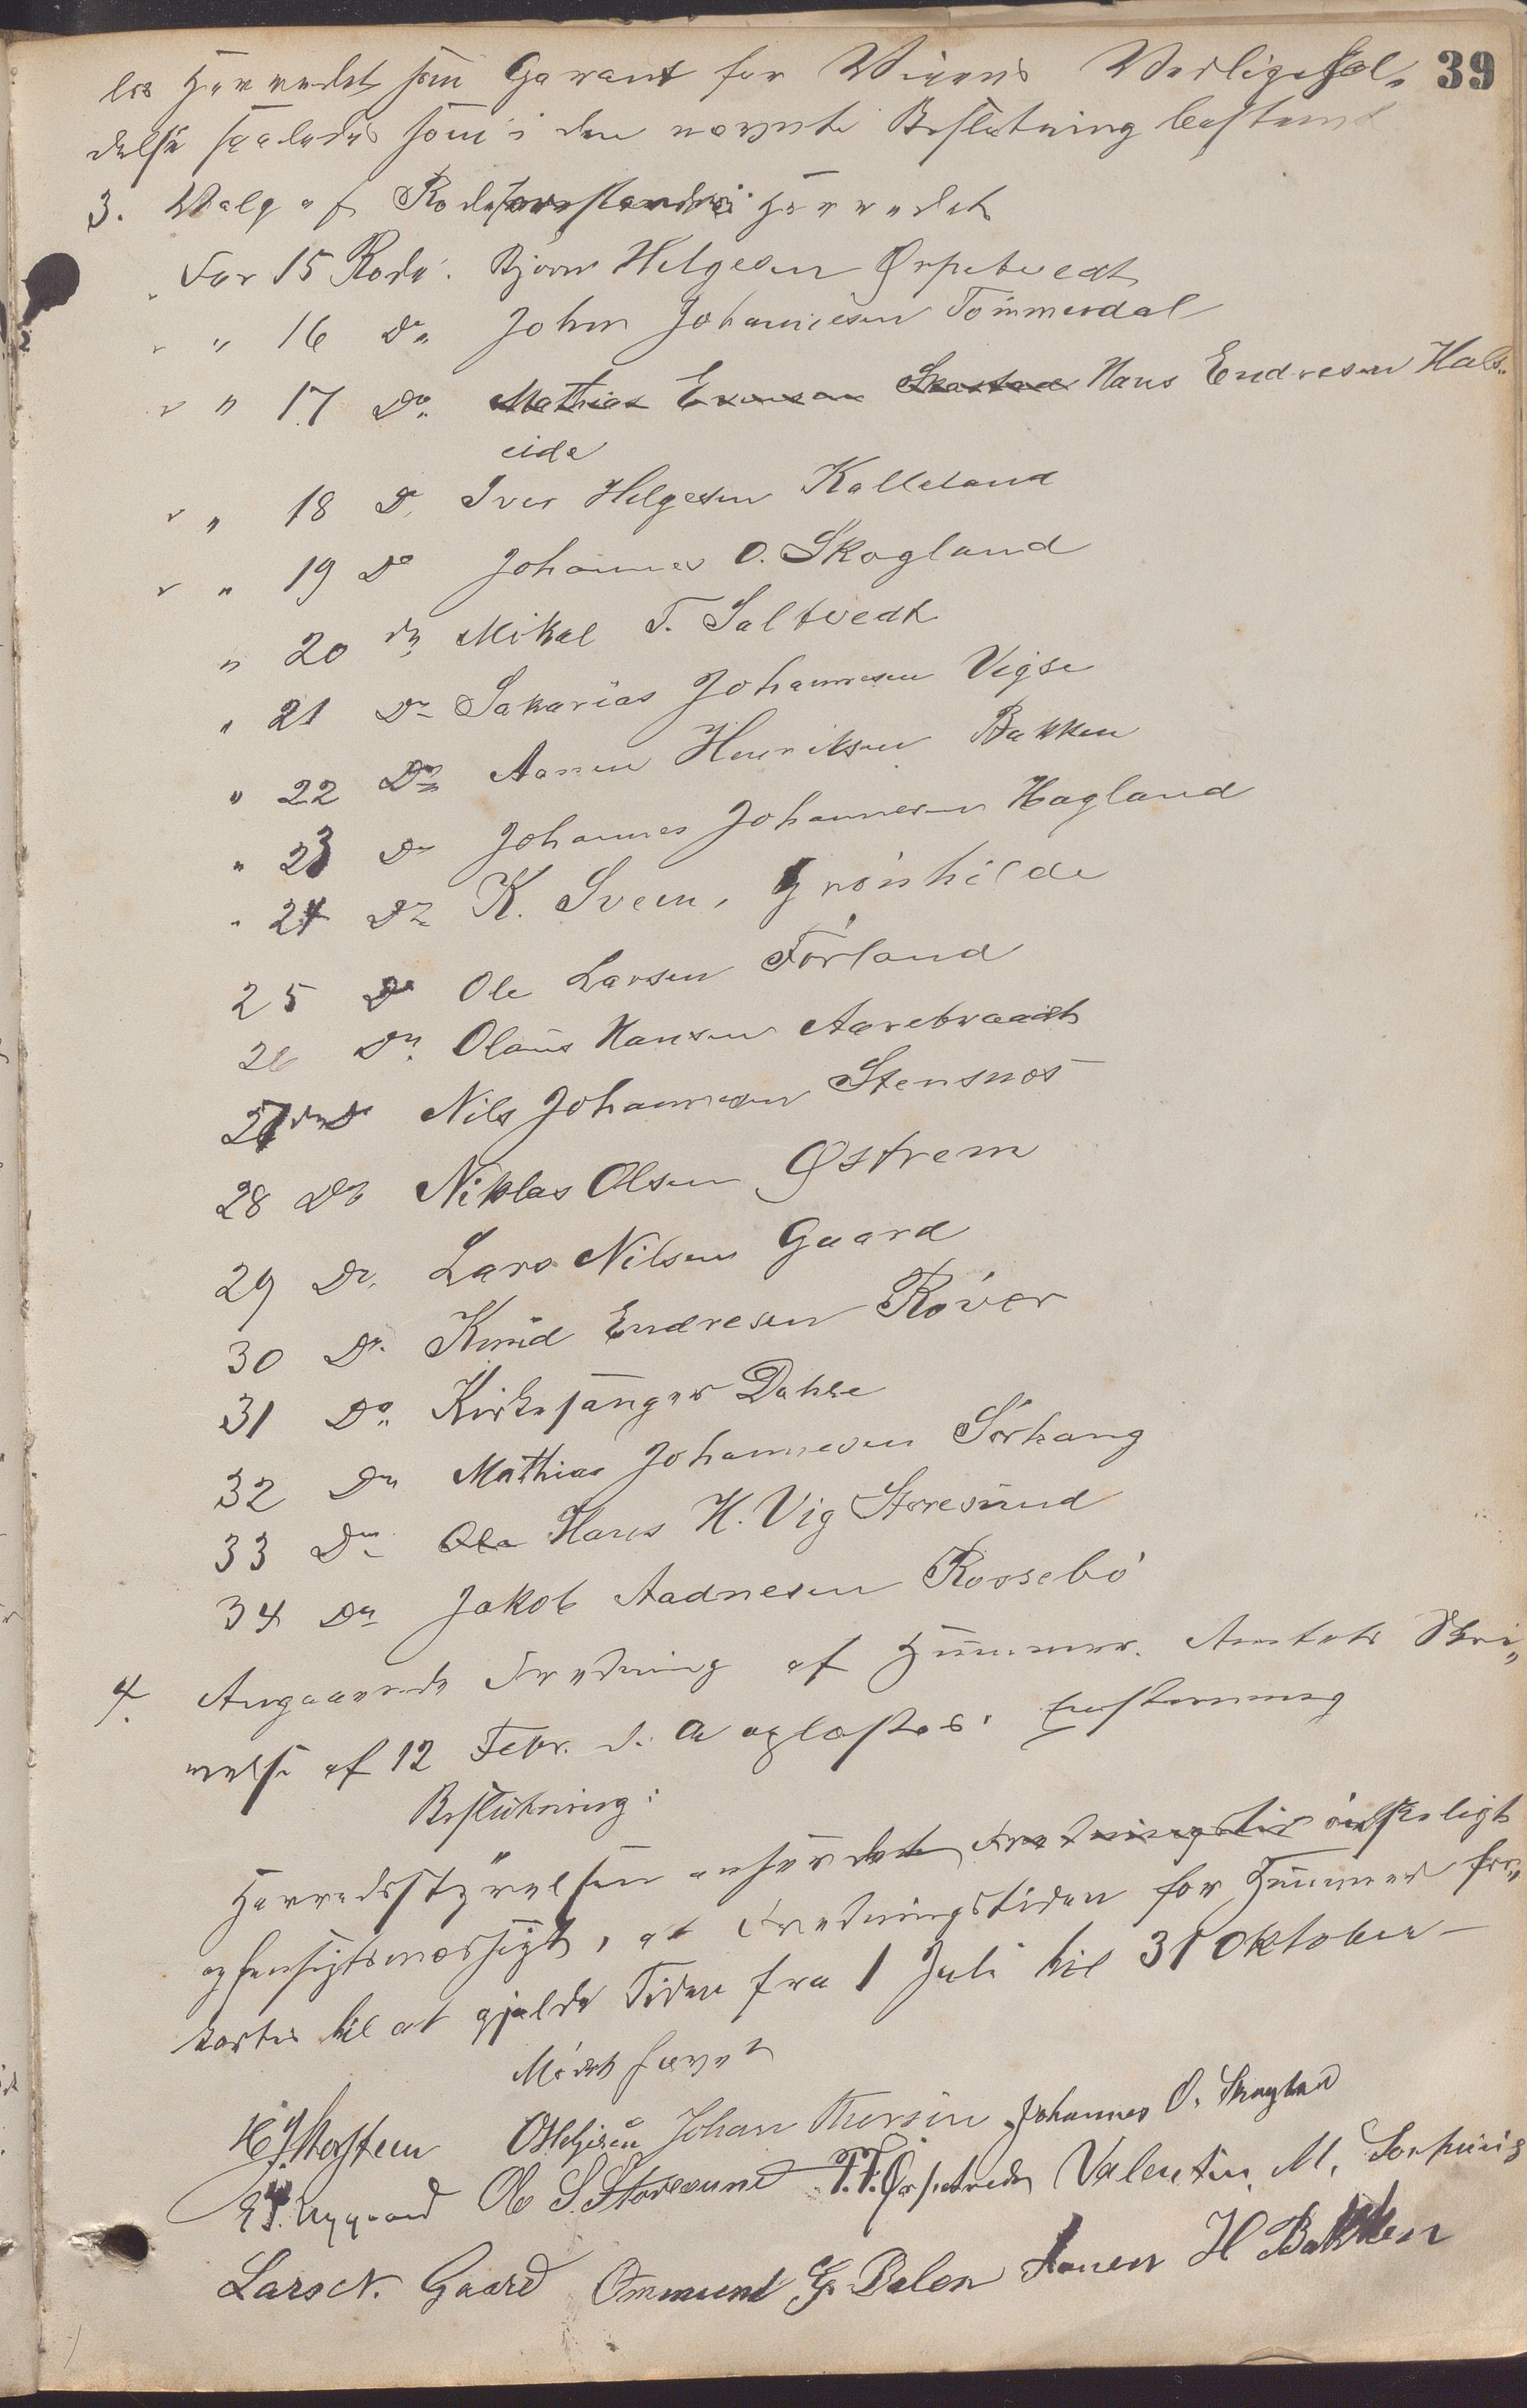 39
les Herredet som Garant for Veiens Vedligehol-
delse saaledes som i den nævnte Beslutning bestemt
3. Valg af Rodeforstandere i Herredet
For 15 Rode. Bjørn Helgesen Ørpetvedt
" 16 Do John Johannesen Tömmerdal
" 17 Do Mathias Evensen Skaastad Hans Endresen Hals-
eide
" 18 Do Iver Helgesen Kalleland
" 19 Do Johannes O. Skogland
" 20 Do Mikal T. Saltvedt
" 21 Do Sakarias Johannesen Vigse
" 22 Do Aanen Henriksen Bakken
" 23 Do Johannes Johannesen Hagland
" 24 Do K. Sveen, Grönhilde
25 Do Ole Larsen Förland
26 Do Olaus Hansen Aarebraadt
27 Do Nils Johannesen Stensnos
28 Do Niklas Olsen Østrem
29 Do Lars Nilsen Gaard
30 Do Knud Endresen Röver
31 Do Kirkesanger Dahle
32 Do Mathias Johannesen Sörhaug
33 Do Ole Hans H. Vig Storesund
34 Do Jakob Aadnesen Rossebö
4. Angaaende Fredning af Hummer. Amtets Skri-
velse af 12 Febr. d. A oplæstes. Enstemmig
Beslutning:
Herredsstyrelsen anser det Fredningstid ønskeligt
og hensigtsmæssigt, at Fredningstiden for Hummer for-
kortes til at gjælde Tiden fra 1 Juli til 31 Oktober
Mödet hævet
O Helgesen Johan Thorsen Johannes O. Skogland
Nygaard Ole S. Storesund T. T. Ørpetvedt Valentin M. Sörhaug
Lars N. Gaard Ommund G. Dalen Aanen H Bakken